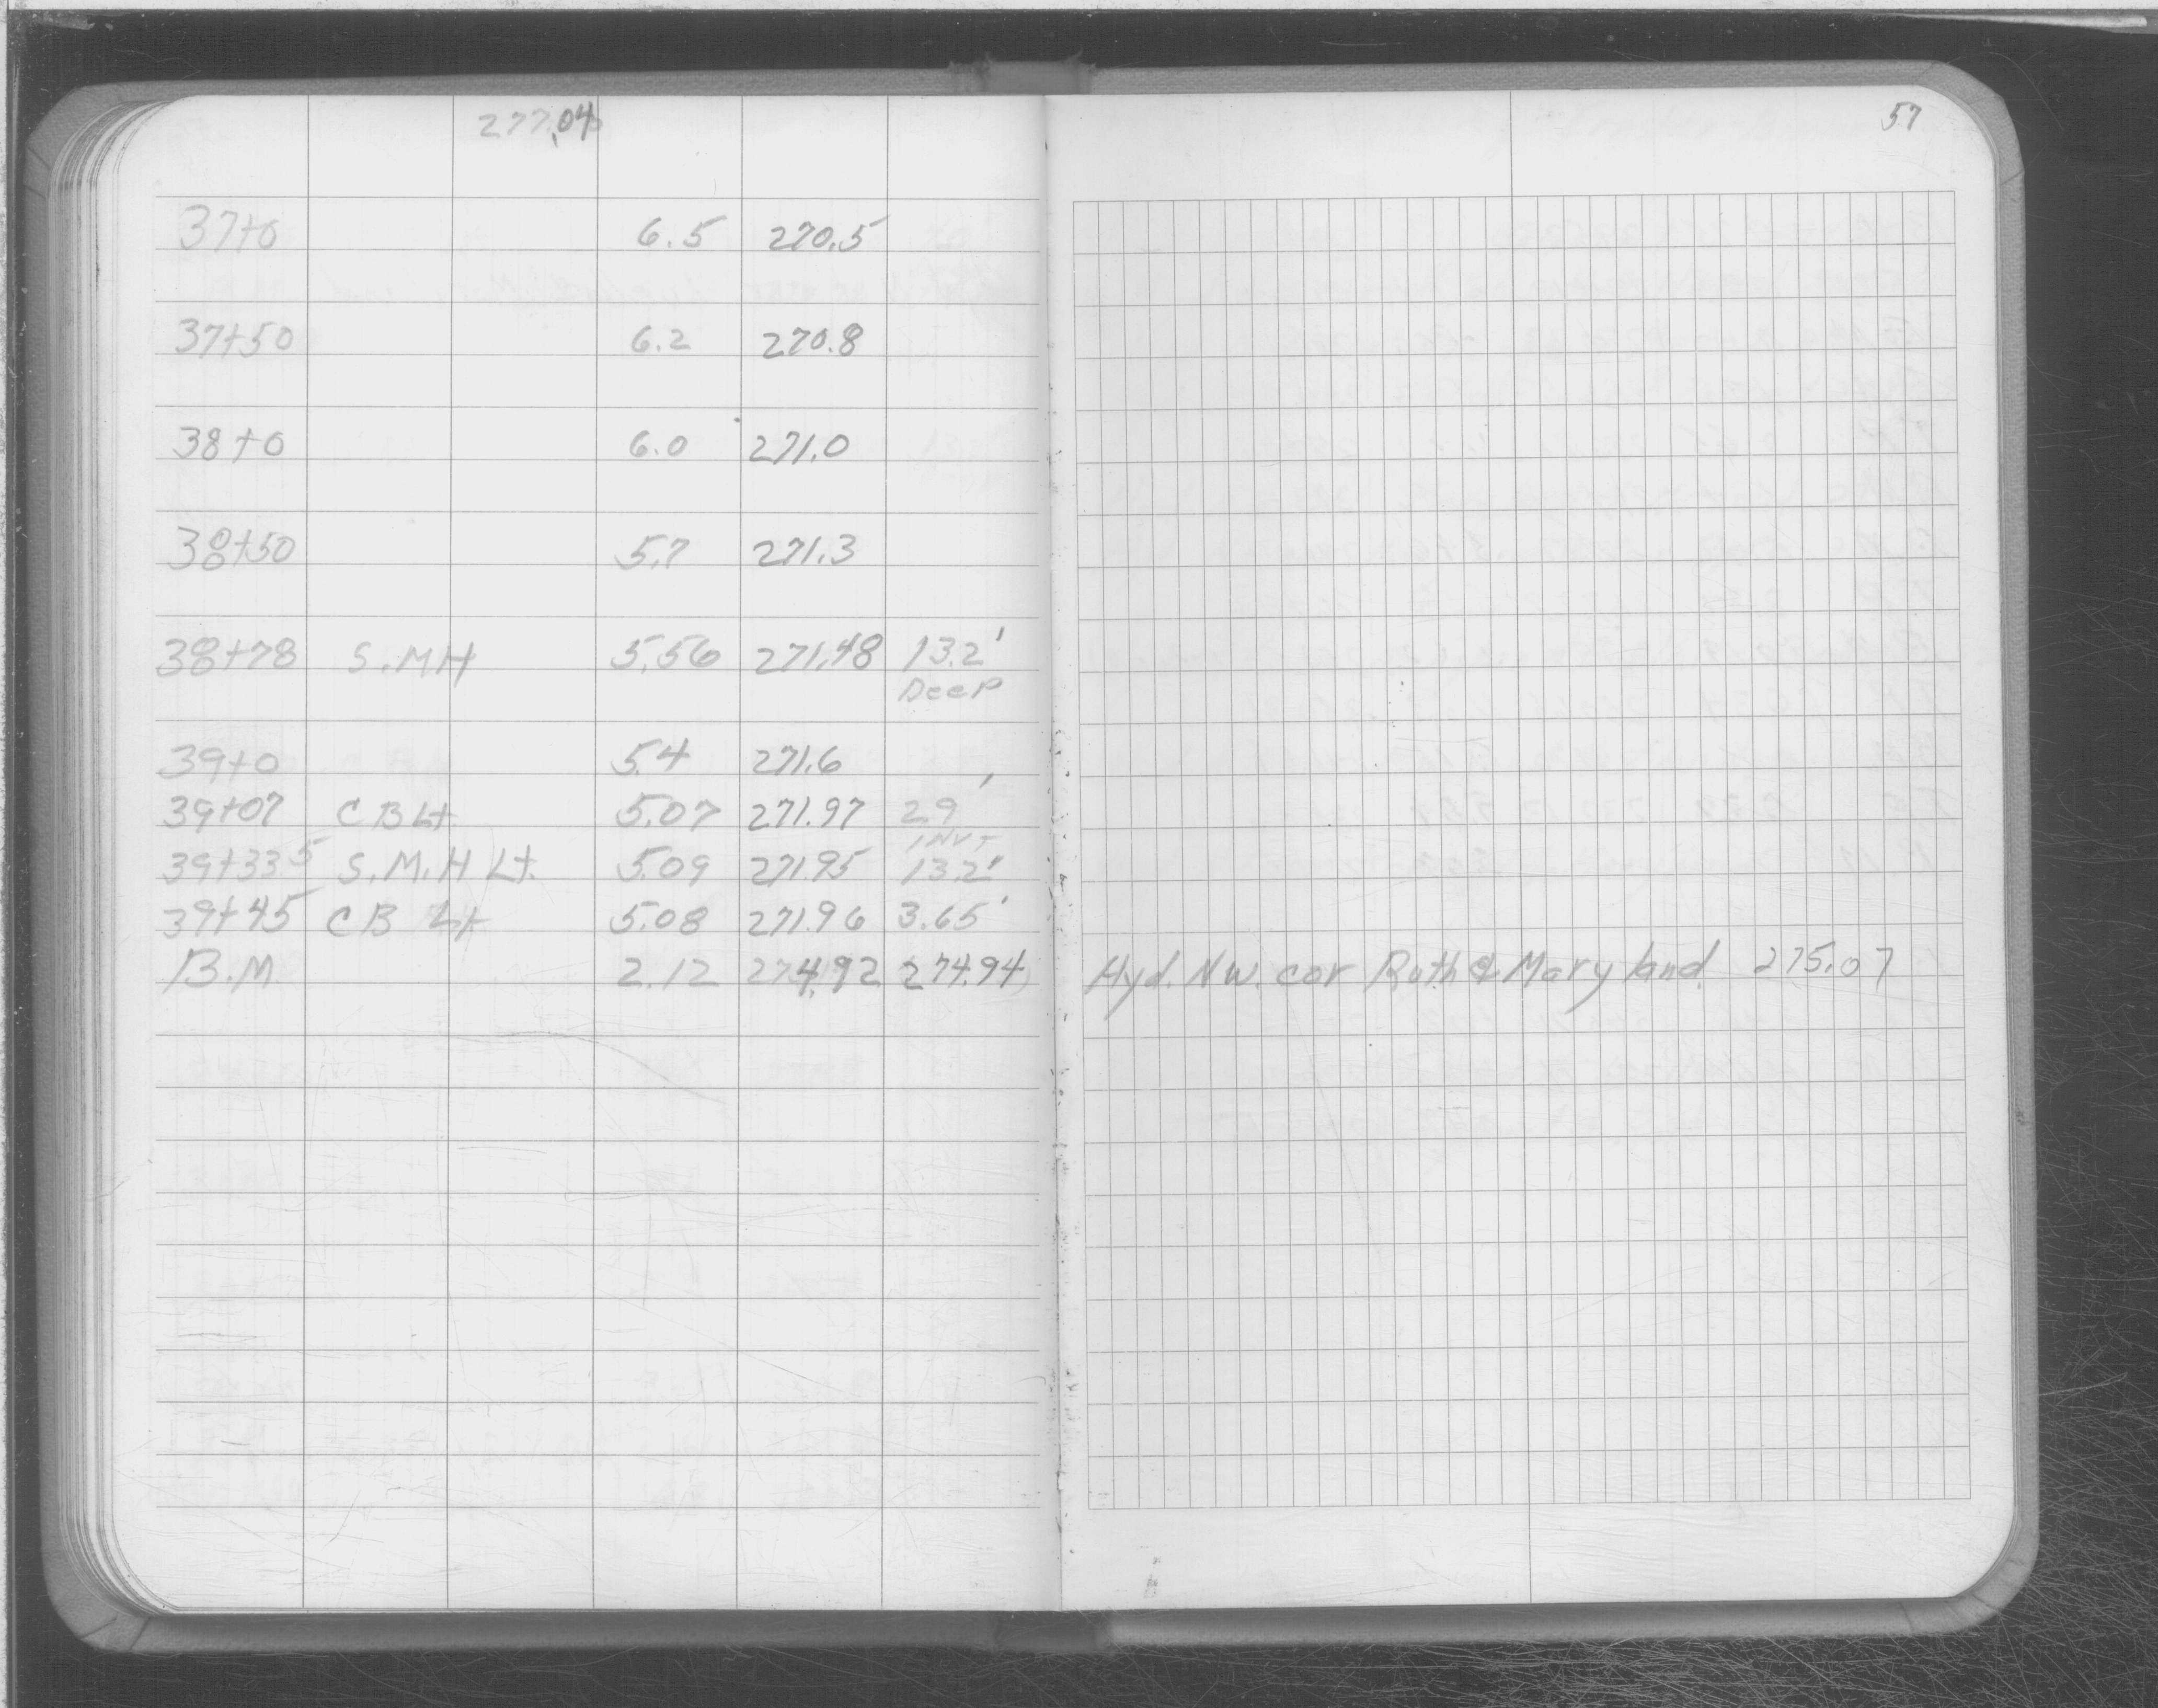 277.04
57
37+0 6.5 270.5
37+50 6.2 270.8
38+0 6.0 271.0
38+50 5.7 271.3
38+78 S.MH 5.56 271.48 13.2'
Deep
39+0 5.4 271.6
39+07 CB Lt 5.07 271.97 29'
INVT
39+33.5 S.M.H Lt. 5.09 271.95 13.2'
39+45 CB Lt 5.08 271.96 3.65'
B.M. 2.12 274.92 274.94 Hyd. N.W. cor Ruth & Maryland 275.07